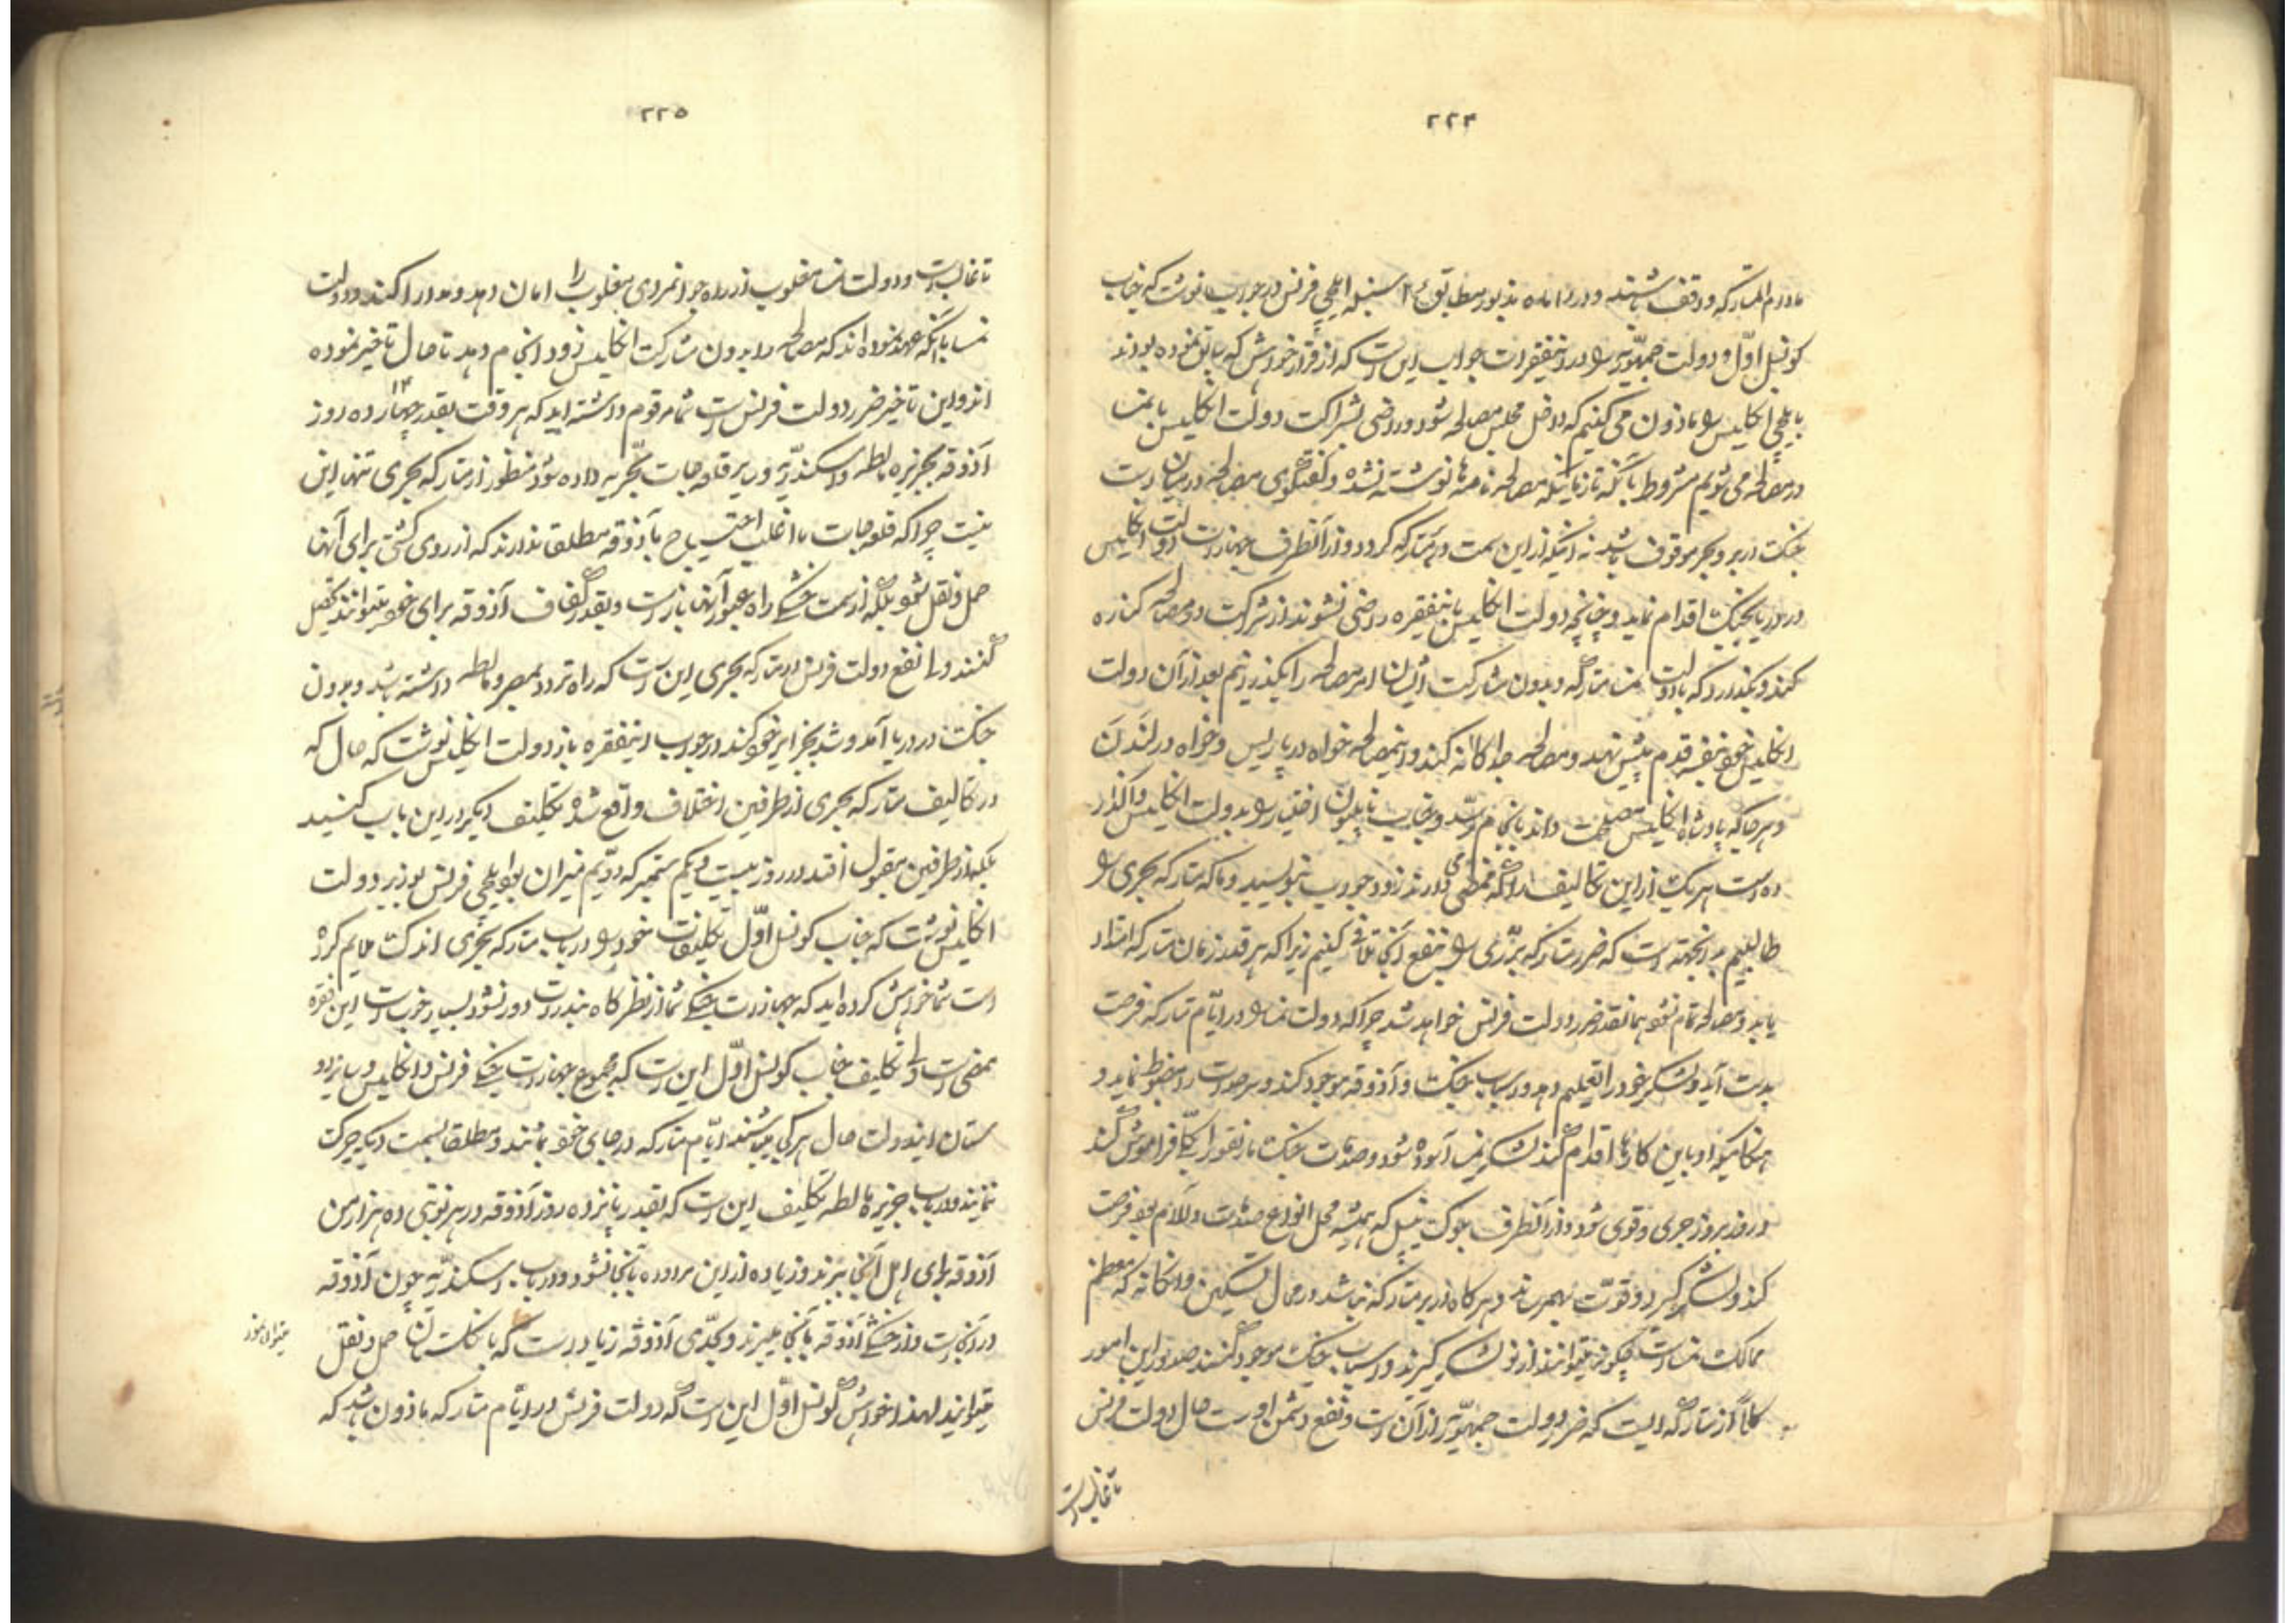 ۲۲۴
مادام المتارکه واقف باشند و در ماه مذبور مطابق ۴ سنبله ایلچی فرانس در جواب نوشت که جناب
کونسل اوّل و دولت جمهوریه را در اینفقرات جواب این است که از قرار خواهش که سابق نموده بودند
با ایلچی انکلیس را ماذون می کنیم که داخل مجلس مصالحه شود و راضی بشراکت دولت انکلیس با نمسا
در مصالحه می شویم مشروط بآنکه تا زمانیکه مصالحه نامه ها نوشته نشده و گفتگوی مصالحه در میان است
جنک در بر و بحر موقوف باشد نه اینکه از این سمت در بر متارکه کردد و از آنطرف جهازات دولت انکلیس
در دریا بجنک اقدام نماید و چنانچه دولت انکلیس باینفقره راضی نشوند از شراکت در مصالحه کناره
کند و بگذارد که با دولت نمسا متارکه و بدون مشارکت ایشان امر مصالحه را بگذرانیم بعد از آن دولت
انکلیس خود بنفسه قدم پیش نهد و مصالحه جداکانه کند و اینمصالحه خواه در پاریس و خواه در لندن
و هر جا که پادشاه انکلیس مصلحت داند بانجام رسد و جناب ناپلیون اختیار را بدولت انکلیس واکذار
ده است هر یک از این تکالیف را که منظور می دارند زود جواب بنویسید و ما که متارکه بحری را
طالبیم بدانجهته است که ضرر متارکه برّی را بنفع آنجا تلافی کنیم زیرا که هر قدر زمان متارکه امتداد
یابد و مصالحه تمام نشود همانقدر ضرر دولت فرانس خواهد شد چرا که دولت نمسا را در ایّام متارکه فرصت
بدست آید و لشکر خود را تعلیم دهد و اسباب جنک و آذوقه موجود کند و سرحدات را مضبوط نماید و
هنکامیکه او باین کارها اقدام کند لشکر نمسا آسوده شود و صدمات جنک ما را بفور بالکل فراموش کند
و روز بروز جری و قوی شود و از آنطرف ملوک نیپل که همیشه محل انواع صدمات و آلام بود فرصت
کند و لشکر کیرد و قوّت بهمرساند و هر کاه در بر متارکه نباشد در محال تسکین و انکانه که معظم
ممالک نمسا است چکونه میتوانند از نو لشکر کیرند و اسباب جنک موجود کنند صدور این امور
کلاً از متارکه ایست که ضرر دولت جمهوریّه از آن است و نفع دشمن اوست حال دولت فرانس
تا غالب است
۲۲۵
تا غالب است و دولت نمسا مغلوب از راه جوانمردی مغلوب را امان دهد و مدارا کند و دولت
نمسا با آنکه عهد نموده اند که مصالحه را بدون مشارکت انکلیس زود انجام دهد تا حال تاخیر نموده
اند و این تاخیر ضرر دولت فرانس است شما مرقوم داشته اید که هر وقت بقدر چهارده ۱۴ روز
آذوقه بجزیره مالطه و اسکندریّه و سایر قلعه جات بحریّه داده شود منظور از متارکه بحری تنها این
نیست چرا که قلعه جات ما اغلب احتیاج بآذوقه مطلقا ندارند که از روی کشتی برای آنها
حمل و نقل شود بلکه از سمت خشکی راه عبور آنها باز است و بقدر کفاف آذوقه برای خود میتوانند تحصیل
کنند و اما نفع دولت فرانس در متارکه بحری این است که راه تردد بمصر و مالطه داشته باشد و بدون
جنک در دریا آمد و شد بجزایر خود کند در جواب اینفقره باز دولت انکلیس نوشت که حال که
در تکالیف متارکه بحری از طرفین اختلاف واقع شده تکلیف دیکر در این باب کنید
بلکه از طرفین مقبول افتد در روز بیست و یکم ستمبر که دوّیم میزان بود ایلچی فرانس بوزیر دولت
انکلیس نوشت که جناب کونسل اوّل تکلیفات خود را در باب متارکه بحری اندک ملایم کرده
است شما خواهش کرده اید که جهازات جنکی شما از نظرکاه بندرات دور نشود بسیار خوب است این فقره
ممضی است ولی تکلیف جناب کونسل اوّل این است که مجموع جهازات جنکی فرانس و انکلیس و سایر دو
ستان ایندولت حال هر کجا میباشند ایّام متارکه در جای خود بمانند و مطلقا بسمت دیکر حرکت
ننمایند و در باب جزیره مالطه تکلیف این است که بقدر پانزده روز آذوقه در هر نوبتی ده هزار من
آذوقه برای اهل آنجا ببرند و زیاده از این مراوده بآنجا نشود و در باب اسکندریّه چون آذوقه
در آنجا است و از خشکی آذوقه بآنجا میبرند و بحدّی آذوقه زیاد است که بانکلستان حمل و نقل
میتوانید لهذا خواهش کونسل اوّل این است که دولت فرانس در ایّام متارکه ماذون باشد که
میتواند نمود